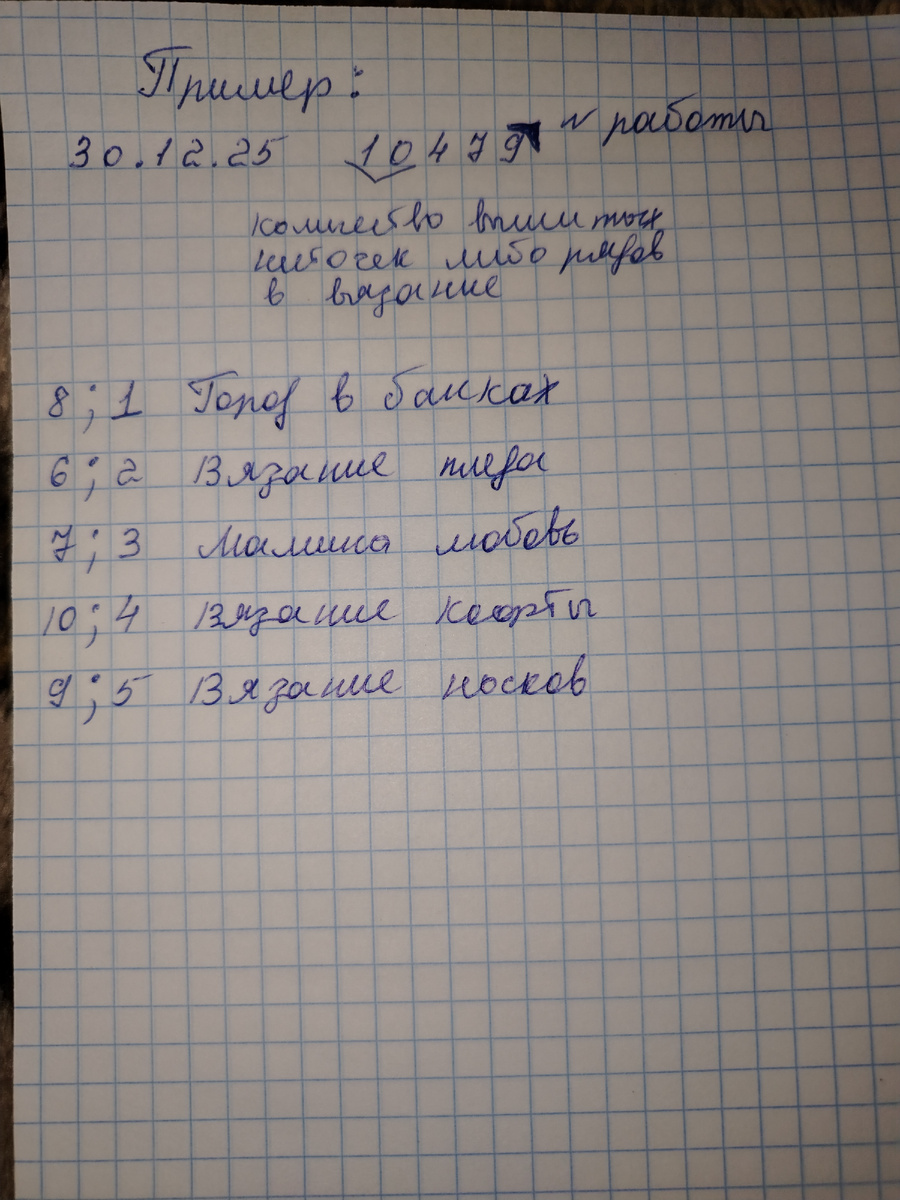 Пример:
30.12.25 10479 ~ работы
количество вышитых
ниточек либо рядов
в вязание
8; 1 Город в банках
6; 2 Вязание пледа
7; 3 Мамина любовь
10; 4 Вязание кофты
9; 5 Вязание носков